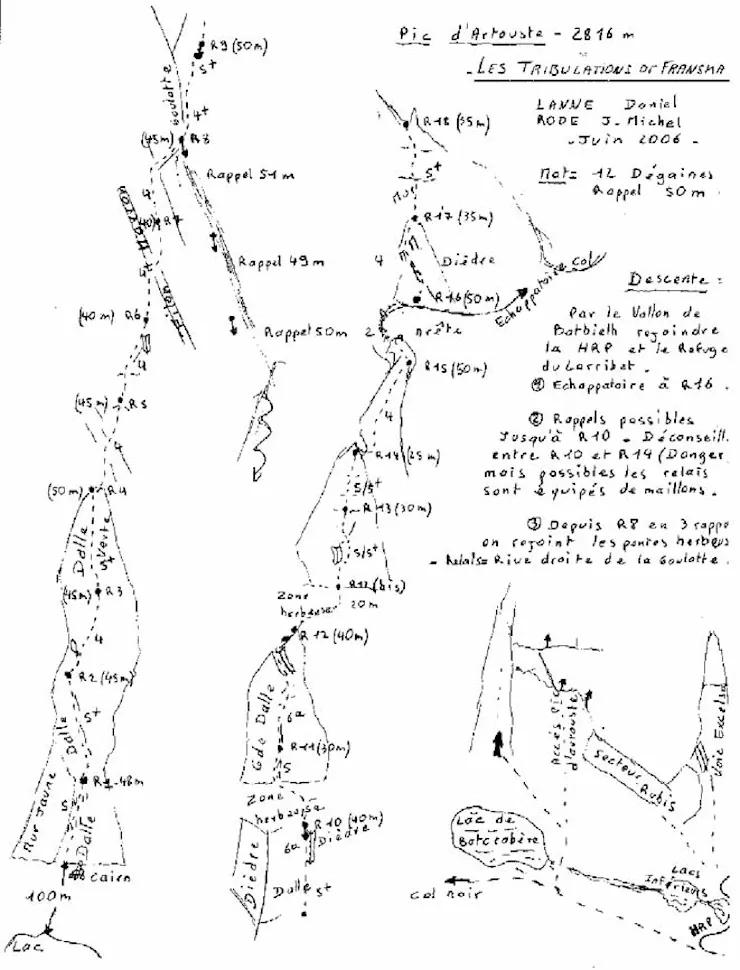 Pic d'Artouste - 2816 m
- LES TRIBULATIONS DE FRANSMA
LANNE Daniel
RODE J. Michel
- Juin 2006 -
Mat= 12 Dégaines
Rappel 50m.
Descente =
Par le Vallon de
Batbielh rejoindre
la HRP et le Refuge
du Larribet.
① Echappatoire à R16.
② Rappels possibles
Jusqu'à R10 - Déconseill.
entre R10 et R14 (Danger
mais possibles les relais
sont équipés de maillons.
③ Depuis R8 en 3 rappe
on rejoint les pentes herbeus
- Relais= Rive droite de la Goulotte.
R9 (50m)
5+
Goulotte
4+
(45m) R8
Rappel 51 m
4
(40) R7
4+
Pilier
Rappel 49 m
(40m) R6
Rappel 50m
4
(45m) R5
4
(50m) R4
Dalle
Verte
5+
(45m) R3
4
R2 (45m)
5+
Dalle
R1-48m
Mur Jaune
5
Dalle
Cairn
100m
Lac
R18 (35m)
5+
Mur
R17 (35m)
4
Dièdre
R16 (50m)
Echappatoire
Col
2
Arête
R15 (50m)
4
R14 (25m)
5/5+
R13 (30m)
5/5+
R12 (bis)
Zone
herbeuse
20m
R12 (40m)
Gde Dalle
6a
R11 (30m)
5
Zone
herbeuse
R10 (40m)
6a
Dièdre
Dièdre
Dalle
5+
Accès Pic
d'Arrouste
Secteur Rubis
Voie Excelsd
Lac de
Batcrabère
Lacs
Inférieurs
Col noir
HRP